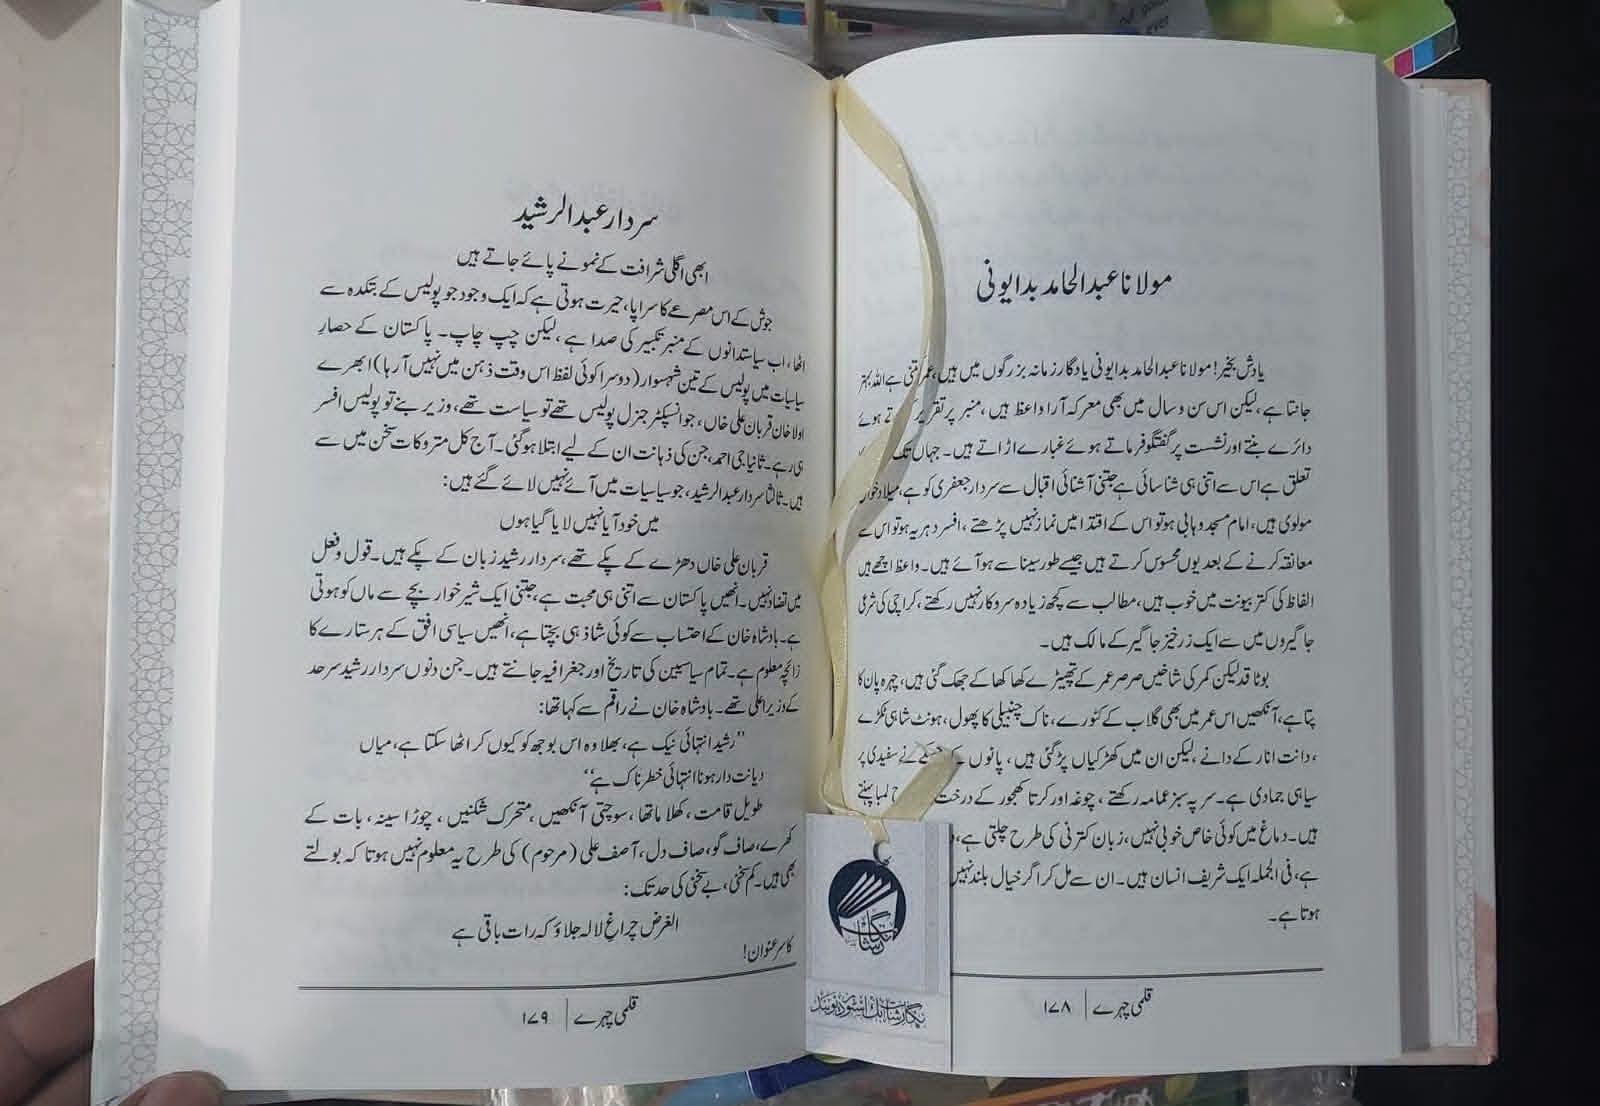 مولانا عبدالحامد بدایونی
یادش بخیر! مولانا عبدالحامد بدایونی یادگار زمانہ بزرگوں میں ہیں، عمر کتنی ہے اللہ بہتر
جانتا ہے، لیکن اس سن و سال میں بھی معرکہ آرا واعظ ہیں، منبر پر تقریر کرتے ہوئے
دائرے بنتے اور نشست پر گفتگو فرماتے ہوئے غبارے اڑاتے ہیں۔ جہاں تک
تعلق ہے اس سے اتنی ہی شناسائی ہے جتنی آشنائی اقبال سے سردار جعفری کو ہے، میلاد خواں
مولوی ہیں، امام مسجد وہابی ہو تو اس کے اقتدا میں نماز نہیں پڑھتے، افسر دہریہ ہو تو اس سے
معانقہ کرنے کے بعد یوں محسوس کرتے ہیں جیسے طور سینا سے ہو آئے ہیں۔ واعظ اچھے ہیں
الفاظ کی کتر بیونت میں خوب ہیں، مطالب سے کچھ زیادہ سروکار نہیں رکھتے، کراچی کی شرعی
جاگیروں میں سے ایک زرخیز جاگیر کے مالک ہیں۔
بوٹا قد لیکن کمر کی شاخیں صرصر عمر کے تھپیڑے کھا کھا کے جھک گئی ہیں، چہرہ پان کا
پتا ہے، آنکھیں اس عمر میں بھی گلاب کے کٹورے، ناک چنبیلی کا پھول، ہونٹ شاہی ٹکڑے
، دانت انار کے دانے، لیکن ان میں کھڑکیاں پڑ گئی ہیں، پانوں کے نے سفیدی پر
سیاہی جمادی ہے۔ سر پہ سبز عمامہ رکھتے، چوغہ اور کرتا کھجور کے درخت لمبا پہنتے
ہیں۔ دماغ میں کوئی خاص خوبی نہیں، زبان کترنی کی طرح چلتی ہے،
ہے، فی الجملہ ایک شریف انسان ہیں۔ ان سے مل کر اگر خیال بلند نہیں
ہوتا ہے۔
قلمی چہرے | ۱۷۸
سردار عبدالرشید
ابھی اگلی شرافت کے نمونے پائے جاتے ہیں
جوش کے اس مصرعے کا سراپا، حیرت ہوتی ہے کہ ایک وجود جو پولیس کے بتکدہ سے
اٹھا، اب سیاستدانوں کے منبر تکبیر کی صدا ہے، لیکن چپ چاپ۔ پاکستان کے حصارِ
سیاسیات میں پولیس کے تین شہسوار (دوسرا کوئی لفظ اس وقت ذہن میں نہیں آ رہا) ابھرے
اولا خان قربان علی خاں، جو انسپکٹر جنرل پولیس تھے تو سیاست تھے، وزیر بنے تو پولیس افسر
ہی رہے۔ ثانیا جی احمد، جن کی ذہانت ان کے لیے ابتلا ہو گئی۔ آج کل متروکات سخن میں سے
ہیں۔ ثالثا سردار عبدالرشید، جو سیاسیات میں آئے نہیں لائے گئے ہیں:
میں خود آیا نہیں لایا گیا ہوں
قربان علی خاں دھڑے کے پکے تھے، سردار رشید زبان کے پکے ہیں۔ قول و فعل
میں تضاد نہیں۔ انھیں پاکستان سے اتنی ہی محبت ہے، جتنی ایک شیر خوار بچے سے ماں کو ہوتی
ہے۔ بادشاہ خان کے احتساب سے کوئی شاذ ہی بچتا ہے، انھیں سیاسی افق کے ہر ستارے کا
زائچہ معلوم ہے۔ تمام سیاسیین کی تاریخ اور جغرافیہ جانتے ہیں۔ جن دنوں سردار رشید سرحد
کے وزیر اعلی تھے۔ بادشاہ خان نے راقم سے کہا تھا:
"رشید انتہائی نیک ہے، بھلا وہ اس بوجھ کو کیوں کر اٹھا سکتا ہے، میاں
دیانت دار ہونا انتہائی خطرناک ہے"
طویل قامت، کھلا ماتھا، سوچتی آنکھیں، متحرک شکنیں، چوڑا سینہ، بات کے
کھرے، صاف گو، صاف دل، آصف علی (مرحوم) کی طرح یہ معلوم نہیں ہوتا کہ بولتے
بھی ہیں۔ کم سخنی، بے سخنی کی حد تک:
الغرض چراغِ لالہ جلاؤ کہ رات باقی ہے
کا سر عنوان!
قلمی چہرے | ۱۷۹
نگارشات